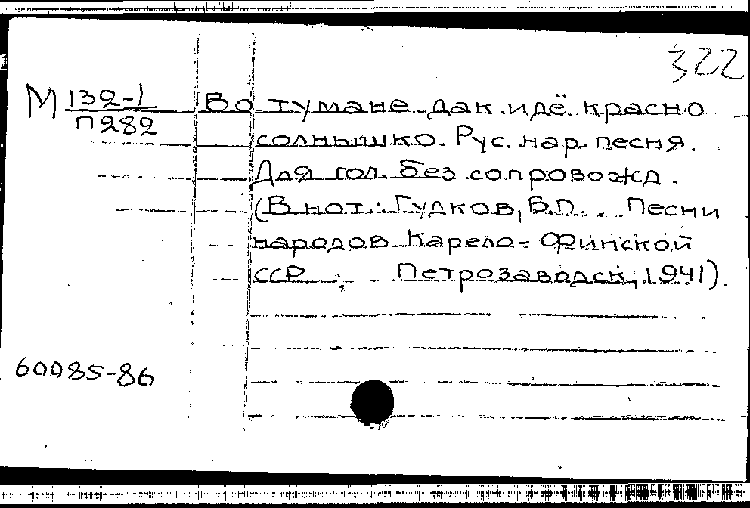 322
М 132-1 Во тумане дак идё красно
П282
солнышко. Рус. нар. песня.
Для гол. без сопровожд.
(В нот.: Гудков, В.П. .. Песни
народов Карело-Финской
ССР. Петрозаводск, 1941).
60085-86